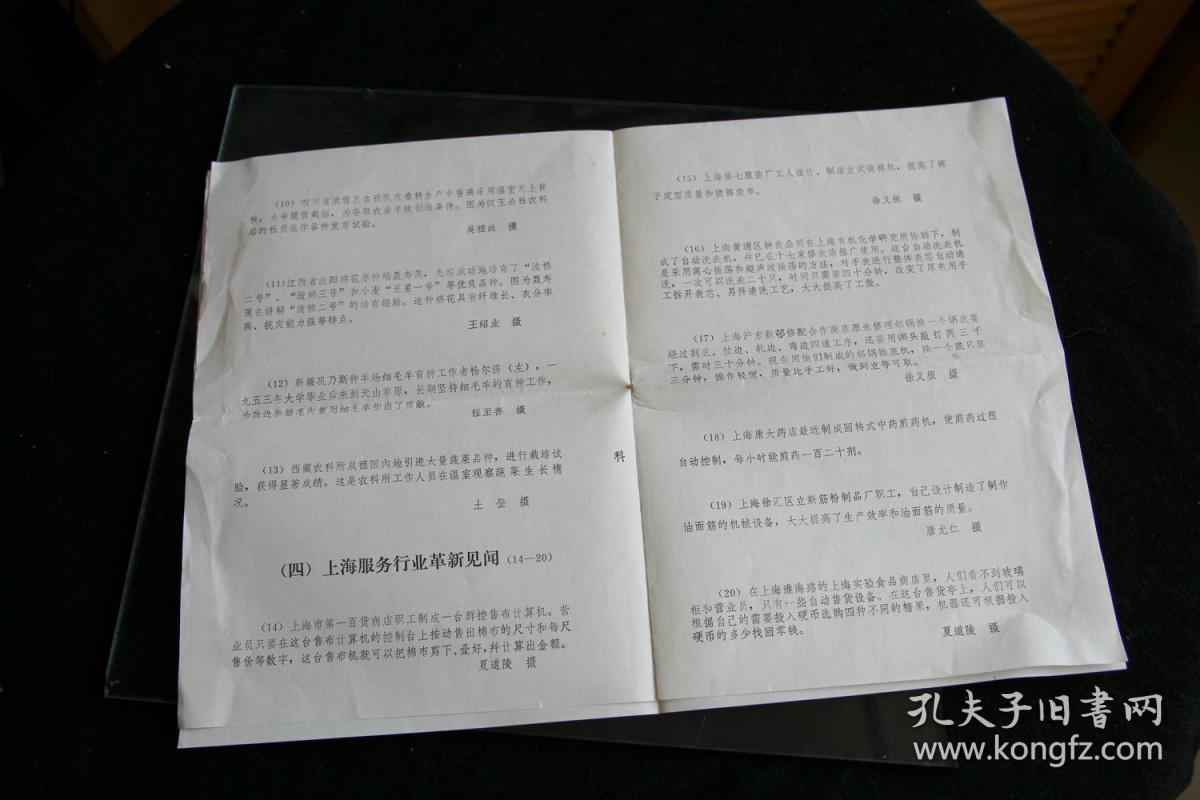 (10) 四川省渍县各社队在春耕生产中普遍采用温室无土育
秧,力争提前栽插,为夺取农业丰收创造条件。图为汉王公社农科
站的社员在作各种发芽试验。
吴祖政 摄
(11)江西省波阳棉花原种场聂寿茂,先后成功地培育了“波棉
二号”、“波棉三号”和小麦“五星一号”等优良品种。图为聂寿
茂在讲解“波棉二号”的培育经验。这种棉花具有纤维长、衣分率
高、抗灾能力强等特点。
王绍业 摄
(12) 新疆巩乃斯种羊场细毛羊育种工作者杨尔济(左),一
九五三年大学毕业后来到天山草原,长期坚持细毛羊的育种工作,
为改进新疆毛肉兼用细毛羊作出了贡献。
程至善 摄
(13) 西藏农科所从祖国内地引进大量蔬菜品种,进行栽培试
验,获得显著成绩。这是农科所工作人员在温室观察蔬菜生长情
况。
土 登 摄
(四) 上海服务行业革新见闻 (14—20)
(14) 上海市第一百货商店职工制成一台群控售布计算机。营
业员只要在这台售布计算机的控制台上按动售出棉布的尺寸和每尺
售价等数字,这台售布机就可以把棉布剪下、叠好,并计算出金额。
夏道陵 摄
科
(15) 上海第七服装厂工人设计、制造立式烫裤机,提高了裤
子定型质量和烫裤效率。
徐义根 摄
(16) 上海黄浦区钟表公司在上海有机化学研究所协助下,制
成了自动洗表机,并已在十七家修表店推广使用。这台自动洗表机
是采用离心振荡和超声波振荡的方法,对手表进行整体表芯自动清
洗,一次可以洗表二十只,时间只需要四十分钟,改变了原来用手
工拆开表芯、另件清洗工艺,大大提高了工效。
(17) 上海沪东新邨修配合作商店原来修理铝锅换一个锅底要
经过划底、拉边、轧边、弯边四道工序,还要用榔头敲打两三千
下,需时三十分钟。现在用他们制成的铝锅换底机,换一个底只要
三分钟,操作轻便,质量比手工好,做到立等可取。
徐义根 摄
(18) 上海康大药店最近制成回转式中药煎药机,使煎药过程
自动控制,每小时能煎药一百二十剂。
(19) 上海徐汇区立新筋粉制品厂职工,自己设计制造了制作
油面筋的机械设备,大大提高了生产效率和油面筋的质量。
唐尤仁 摄
(20) 在上海淮海路的上海实验食品商店里,人们看不到玻璃
柜和营业员,只有一些自动售货设备。在这台售货亭上,人们可以
根据自己的需要投入硬币选购四种不同的糖果,机器还可根据投入
硬币的多少找回零钱。
夏道陵 摄
孔夫子旧書网
www.kongfz.com